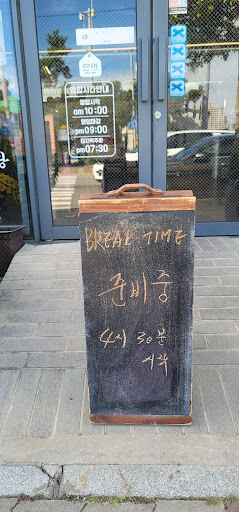 OPEN
영업시간안내
영업시작
am 10:00
영업마감
pm 09:00
pm 07:30
BREAK TIME
준비중
4시 30분
시작